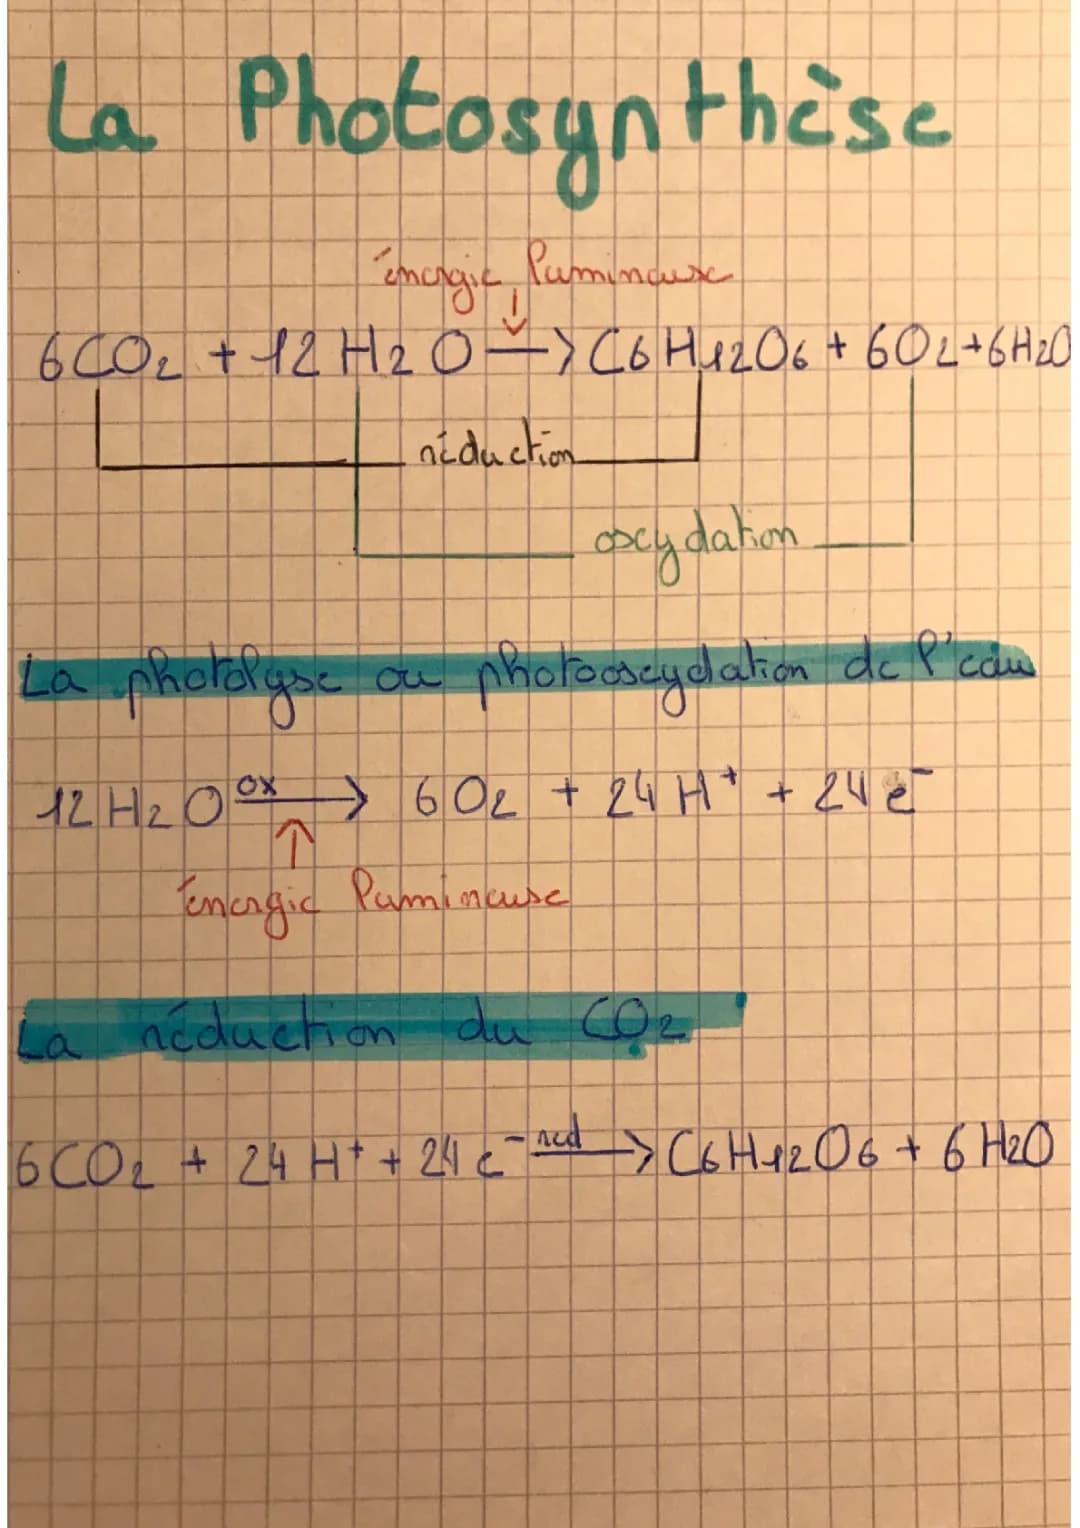 La Photosynthèse
énergie lumineuse
6CO₂ + 12 H₂O → C₆H₁₂O₆ + 6O₂ + 6H₂O
réduction
oxydation
La photolyse ou photooxydation de l'eau
12 H₂O ox → 6O₂ + 24 H⁺ + 24 e⁻
énergie lumineuse
La réduction du CO₂
6CO₂ + 24 H⁺ + 24 e⁻ red → C₆H₁₂O₆ + 6 H₂O